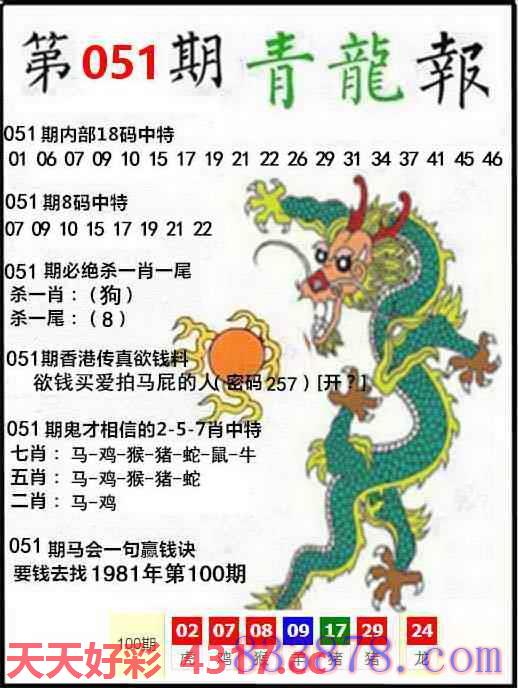 第051期青龍報
051期内部18码中特
01 06 07 09 10 15 17 19 21 22 26 29 31 34 37 41 45 46
051期8码中特
07 09 10 15 17 19 21 22
051期必绝杀一肖一尾
杀一肖:(狗)
杀一尾:(8)
051期香港传真欲钱料
欲钱买爱拍马屁的人(密码257)[开?]
051期鬼才相信的2-5-7肖中特
七肖:马-鸡-猴-猪-蛇-鼠-牛
五肖:马-鸡-猴-猪-蛇
二肖:马-鸡
051期马会一句赢钱诀
要钱去找1981年第100期
100期 02 07 08 09 17 29 24
虎 鸡 猴 羊 猪 猪 龙
天天好彩 4317.cc